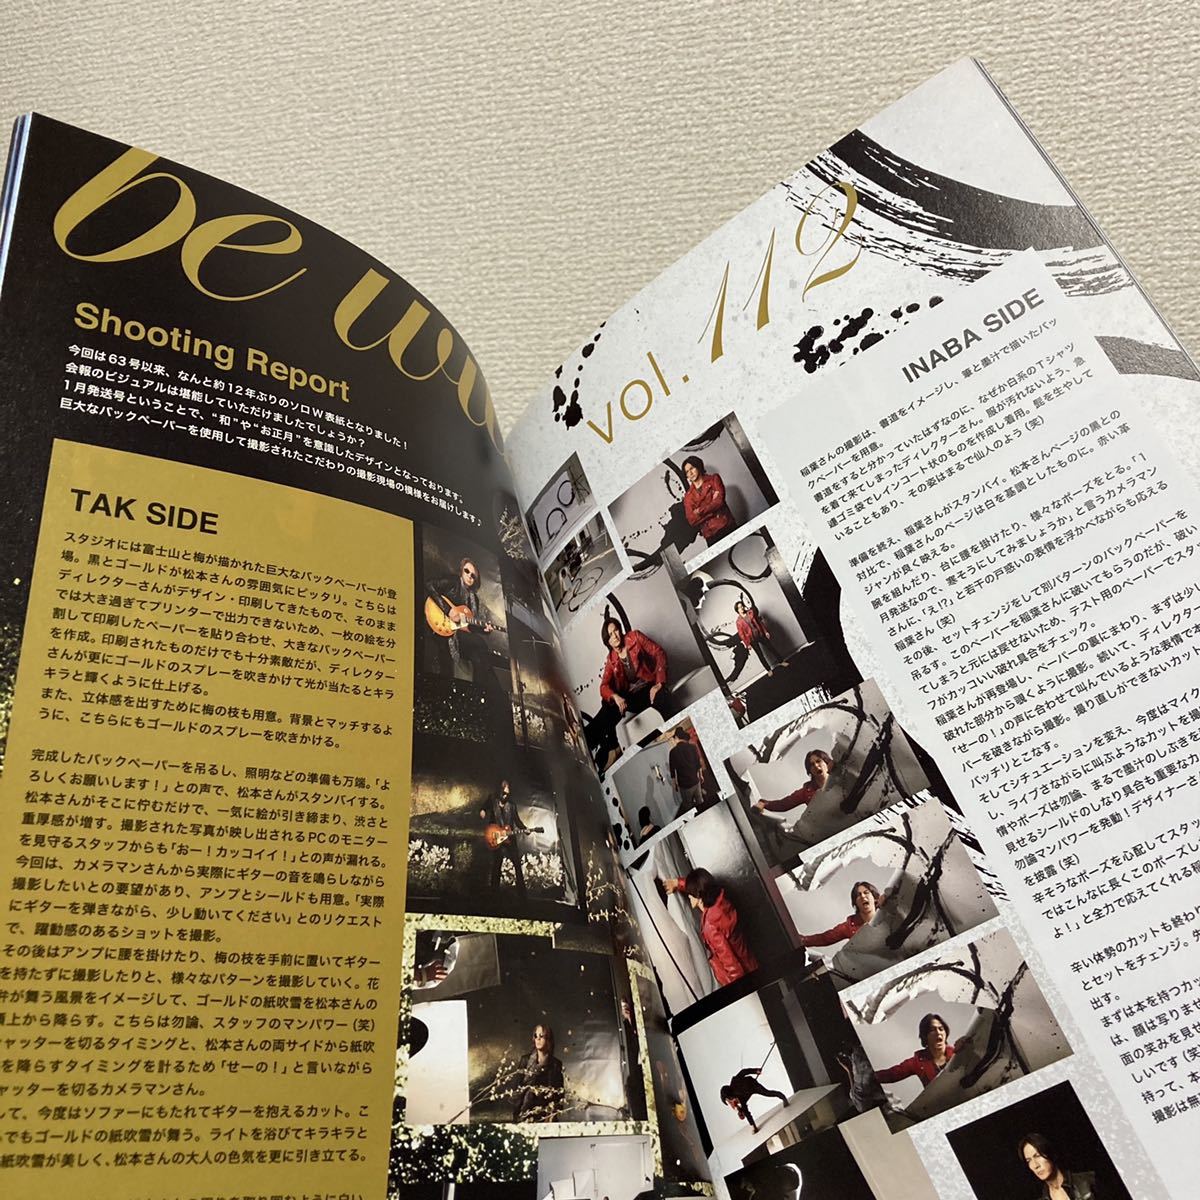 be w
Shooting Report
今回は63号以来、なんと約12年ぶりのソロW表紙となりました！
会報のビジュアルは堪能していただけましたでしょうか？
1月発送号ということで、“和”や“お正月”を意識したデザインとなっております。
巨大なバックペーパーを使用して撮影されたこだわりの撮影現場の模様をお届けします♪
TAK SIDE
スタジオには富士山と梅が描かれた巨大なバックペーパーが登
場。黒とゴールドが松本さんの雰囲気にピッタリ。こちらは
ディレクターさんがデザイン・印刷してきたもので、そのまま
では大き過ぎてプリンターで出力できないため、一枚の絵を分
割して印刷したペーパーを貼り合わせ、大きなバックペーパー
を作成。印刷されたものだけでも十分素敵だが、ディレクター
さんが更にゴールドのスプレーを吹きかけて光が当たるとキラ
キラと輝くように仕上げる。
また、立体感を出すために梅の枝も用意。背景とマッチするよ
うに、こちらにもゴールドのスプレーを吹きかける。
完成したバックペーパーを吊るし、照明などの準備も万端。「よ
ろしくお願いします！」との声で、松本さんがスタンバイする。
松本さんがそこに佇むだけで、一気に絵が引き締まり、渋さと
重厚感が増す。撮影された写真が映し出されるPCのモニター
を見守るスタッフからも「おー！カッコイイ！」との声が漏れる。
今回は、カメラマンさんから実際にギターの音を鳴らしながら
撮影したいとの要望があり、アンプとシールドも用意。「実際
にギターを弾きながら、少し動いてください」とのリクエスト
で、躍動感のあるショットを撮影。
その後はアンプに腰を掛けたり、梅の枝を手前に置いてギター
を持たずに撮影したりと、様々なパターンを撮影していく。花
弁が舞う風景をイメージして、ゴールドの紙吹雪を松本さんの
頭上から降らす。こちらは勿論、スタッフのマンパワー（笑）
ャッターを切るタイミングと、松本さんの両サイドから紙吹
を降らすタイミングを計るため「せーの！」と言いながら
ャッターを切るカメラマンさん。
して、今度はソファーにもたれてギターを抱えるカット。こ
でもゴールドの紙吹雪が舞う。ライトを浴びてキラキラと
紙吹雪が美しく、松本さんの大人の色気を更に引き立てる。
vol. 112
INABA SIDE
稲葉さんの撮影は、書道をイメージし、筆と墨汁で描いたバッ
クペーパーを用意。
書道をすると分かっていたはずなのに、なぜか白系のTシャツ
を着て来てしまったディレクターさん。服が汚れないよう、急
遽ゴミ袋でレインコート状のものを作成し着用。髭を生やして
いることもあり、その姿はまるで仙人のよう（笑）
準備を終え、稲葉さんがスタンバイ。松本さんページの黒との
対比で、稲葉さんのページは白を基調としたものに。赤い革
ジャンが良く映える。
腕を組んだり、台に腰を掛けたり、様々なポーズをとる。「1
月発送なので、寒そうにしてみましょうか」と言うカメラマン
さんに、「え!?」と若干の戸惑いの表情を浮かべながらも応える
稲葉さん（笑）
その後、セットチェンジをして別パターンのバックペーパーを
吊るす。このペーパーを稲葉さんに破いてもらうのだが、破い
てしまうと元には戻せないため、テスト用のペーパーでスタ
フがカッコいい破れ具合をチェック。
稲葉さんが再登場し、ペーパーの裏にまわり、まずは少
破れた部分から覗くように撮影。続いて、ディレクタ
「せーの！」の声に合わせて叫んでいるような表情で
バーを破きながら撮影。撮り直しができないカット
バッチリとこなす。
そしてシチュエーションを変え、今度はマイク
し、ライブさながらに叫ぶようなカットを撮
情やポーズは勿論、まるで墨汁のしぶきを
見せるシールドのしなり具合も重要なカ
勿論マンパワーを発動！デザイナーさ
を披露（笑）
辛そうなポーズを心配してスタッ
ではこんなに長くこのポーズし
よ！」と全力で応えてくれる稲
辛い体勢のカットも終わ
とセットをチェンジ。
出す。
まずは本を持つカッ
は、顔は写りませ
面の笑みを見せ
しいです（笑
持って、本
撮影は無